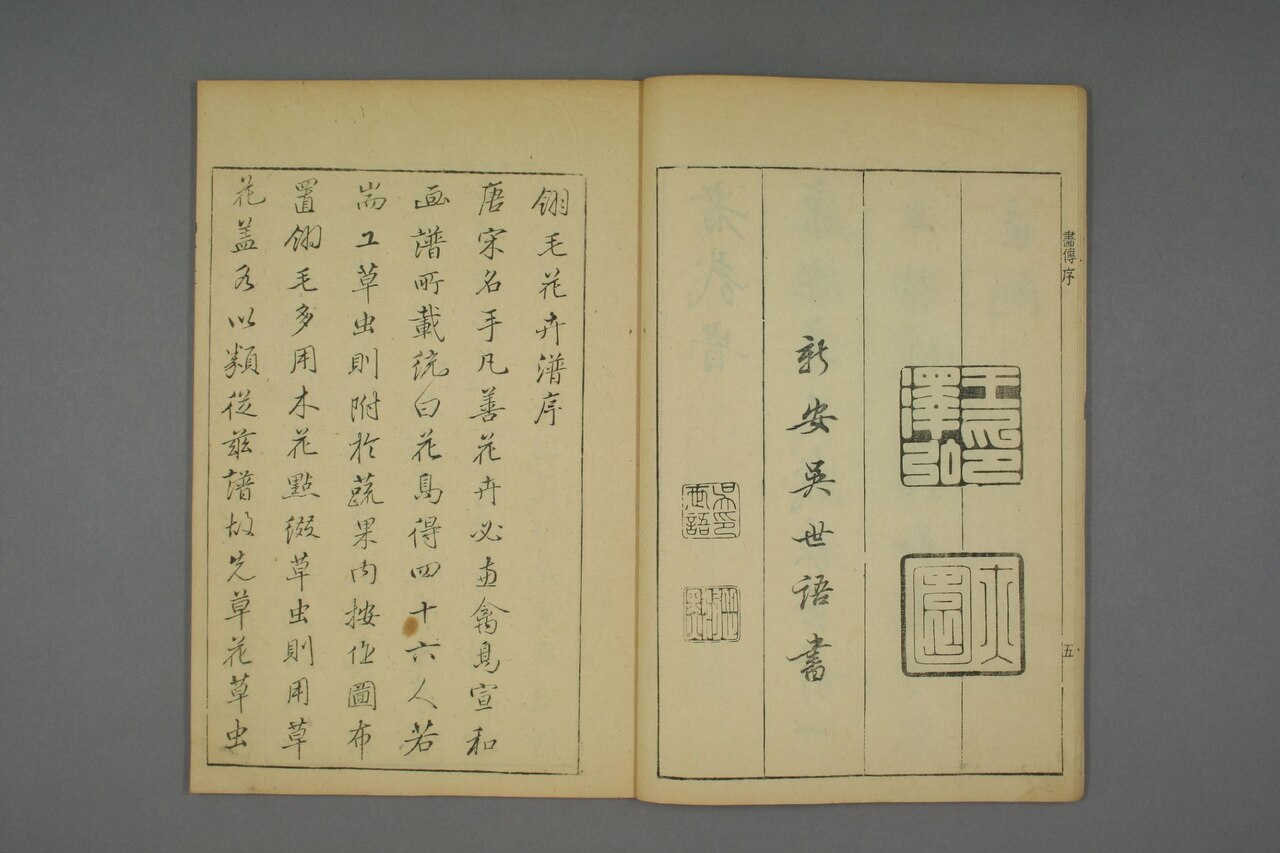 畫傳序
五
王澤弘印
大園
新安吳世語書
吳世語印
翎毛花卉譜序
唐宋名手凡善花卉必畫禽鳥宣和
画譜所載統曰花鳥得四十六人若
耑工草虫則附於蔬果内按作圖布
置翎毛多用木花點綴草虫則用草
花蓋各以類從兹譜故先草花草虫